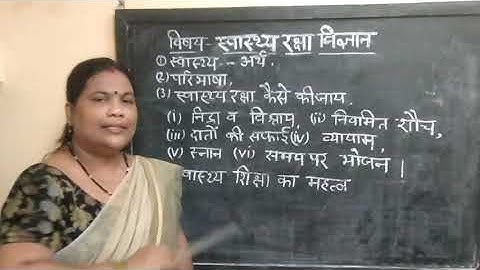 विषय- स्वास्थ्य रक्षा विज्ञान
(1) स्वास्थ्य -- अर्थ.
(2) परिभाषा.
(3) स्वास्थ्य रक्षा कैसे कीजाय.
(i) निद्रा व विश्राम, (ii) नियमित शौच,
(iii) दातों की सफाई (iv) व्यायाम,
(v) स्नान (vi) समय पर भोजन।
शिक्षा का महत्व